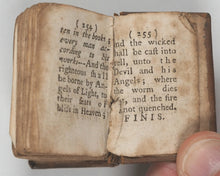 ( 254 )
ten in the books
every man ac-
cording to his
works.--And the
righteous shall
be borne by An-
gels of Light, to
their seats of
bliss in Heaven;
( 255 )
and the wicked
shall be cast into
hell, unto the
Devil and his
Angels; where
the worm dies
not, and the fire
is not quenched.
FINIS.